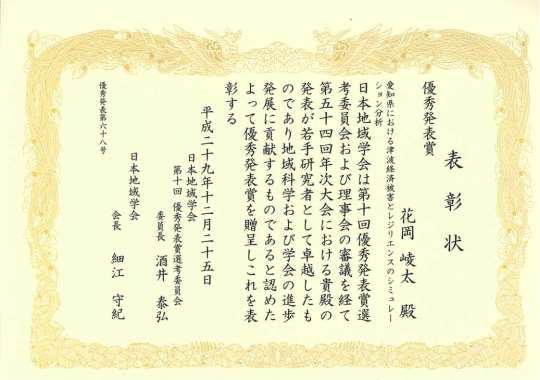 表彰状
花岡 崚太 殿
優秀発表賞
愛知県における津波経済被害とレジリエンスのシミュレー
ション分析
日本地域学会は第十回優秀発表賞選
考委員会および理事会の審議を経て
第五十四回年次大会における貴殿の
発表が若手研究者として卓越したも
のであり地域科学および学会の進歩
発展に貢献するものであると認めた
よって優秀発表賞を贈呈しこれを表
彰する
平成二十九年十二月二十五日
日本地域学会
第十回 優秀発表賞選考委員会
委員長 酒井 泰弘
日本地域学会
会長 細江 守紀
優秀発表第六十八号